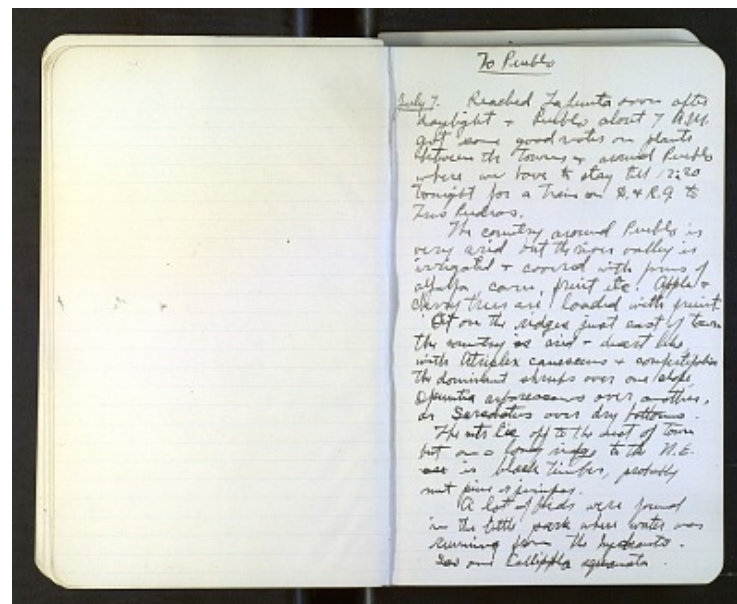 To Pueblo
July 7. Reached La Junta soon after
daylight + Pueblo about 7 A.M.
got some good notes on plants
between the towns + around Pueblo
where we have to stay till 12:20
tonight for a train on D. + R.G. to
Tres Piedras.
The country around Pueblo is
very arid but the river valley is
irrigated + covered with farms of
alfalfa, corn, fruit etc. Apple +
cherry trees are loaded with fruit.
Out on the ridges just east of town
the country is arid + desert like,
with Atriplex canescens + confertifolia
the dominant shrubs over one slope,
Opuntia arborescens over another,
or Sarcobatus over dry bottoms.
The mts lie off to the west of town
but on a long ridge to the N.E.
is black timber, probably
nut pine + junipers.
A lot of birds were found
in the little park where water was
running from the hydrants.
Saw one Callipepla squamata.